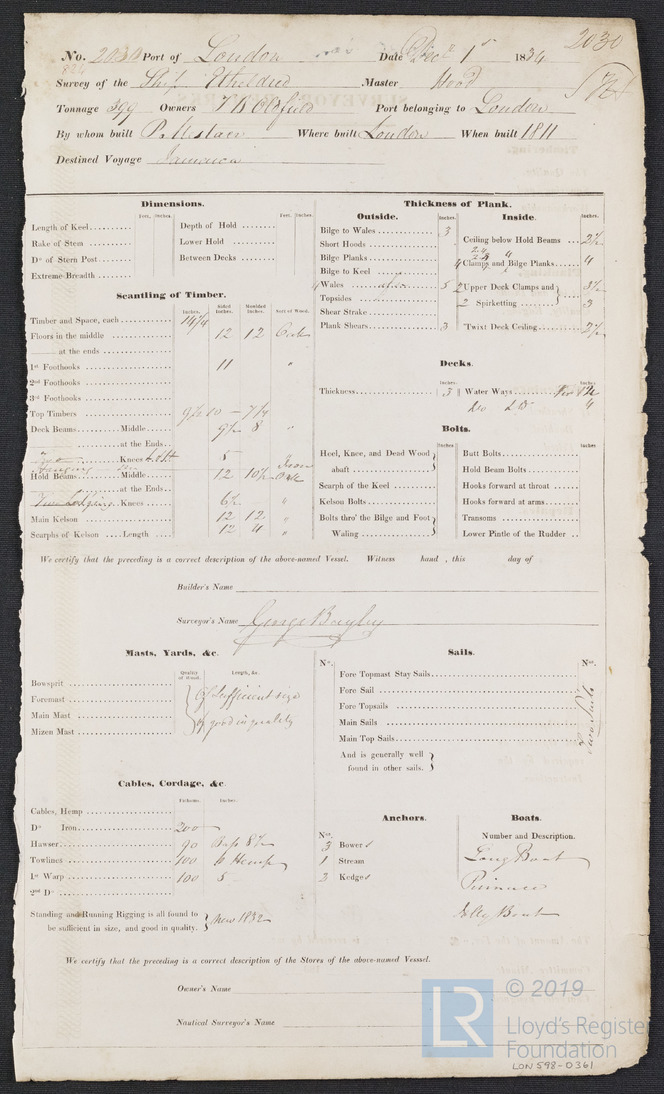 2030
No. 2030 Port of London Date Decr 1st 1834
Survey of the Ship Etheldred Master Hood
Tonnage 399 Owners T B Oldfield Port belonging to London
By whom built P. Mestaer Where built London When built 1811
Destined Voyage Jamaica
Dimensions.
Feet. Inches. Feet. Inches.
Length of Keel.......... Depth of Hold ........
Rake of Stem .......... Lower Hold ........
Do of Stern Post......... Between Decks ........
Extreme Breadth ........
Scantling of Timber.
Inches. Sided Inches. Moulded Inches. Sort of Wood.
Timber and Space, each...........
Floors in the middle ............ 12 12
—— at the ends ............
1st Foothooks ............ 11 "
2nd Foothooks ............
3rd Foothooks ............
Top Timbers ............ 9½ 10 — 7¼
Deck Beams........Middle...... 9½ 8 "
............at the Ends...
Knees 5
Hold Beams........Middle...... 12 10½ Oak
............at the Ends...
Two Lodging Knees...... 6½ "
Main Kelson ............ 12 12 "
Scarphs of Kelson ....Length .... 12 4 "
Thickness of Plank.
Outside. Inches.
Bilge to Wales .............. 3
Short Hoods ..............
Bilge Planks..............
Bilge to Keel ..............
4 Wales above 5
Topsides ..............
Shear Strake ..............
Plank Shears.............. 3
Inside. Inches.
Ceiling below Hold Beams .... 2½
4 Clamps and Bilge Planks...... 4
2 Upper Deck Clamps and } 3½
2 Spirketting ............ } 3
Twixt Deck Ceiling............ 2½
Decks.
Inches. Inches.
Thickness.................... 3 Water Ways............
Do 4
Bolts.
Inches Inches.
Heel, Knee, and Dead Wood } abaft ....................
Scarph of the Keel ............
Kelson Bolts..................
Bolts thro' the Bilge and Foot } Waling ..................
Butt Bolts..................
Hold Beam Bolts............
Hooks forward at throat ......
Hooks forward at arms........
Transoms ..................
Lower Pintle of the Rudder ..
We certify that the preceding is a correct description of the above-named Vessel. Witness hand , this day of
Builder's Name
Surveyor's Name George Bayley
Masts, Yards, &c.
Quality of Wood. Length, &c.
Bowsprit ....................
Foremast .................... Of Sufficient size
Main Mast .................... & good in quality
Mizen Mast ....................
Sails.
No. No.
Fore Topmast Stay Sails....................
Fore Sail ....................
Fore Topsails ....................
Main Sails ....................
Main Top Sails....................
And is generally well } found in other sails. }
Two Suits
Cables, Cordage, &c.
Fathoms. Inches.
Cables, Hemp ....................
Do Iron.................... 200
Hawser.................... 90 Bass 8½
Towlines .................... 100 6 Hemp
1st Warp .................... 100 5
2nd Do ....................
Standing and Running Rigging is all found to } be sufficient in size, and good in quality. } New 1832
Anchors.
No.
3 Bowers
1 Stream
2 Kedges
Boats.
Number and Description.
Long Boat
Pinnace
Jolly Boat
We certify that the preceding is a correct description of the Stores of the above-named Vesssel.
Owner's Name
Nautical Surveyor's Name
LR © 2019
Lloyd's Register
Foundation
LON598-0361